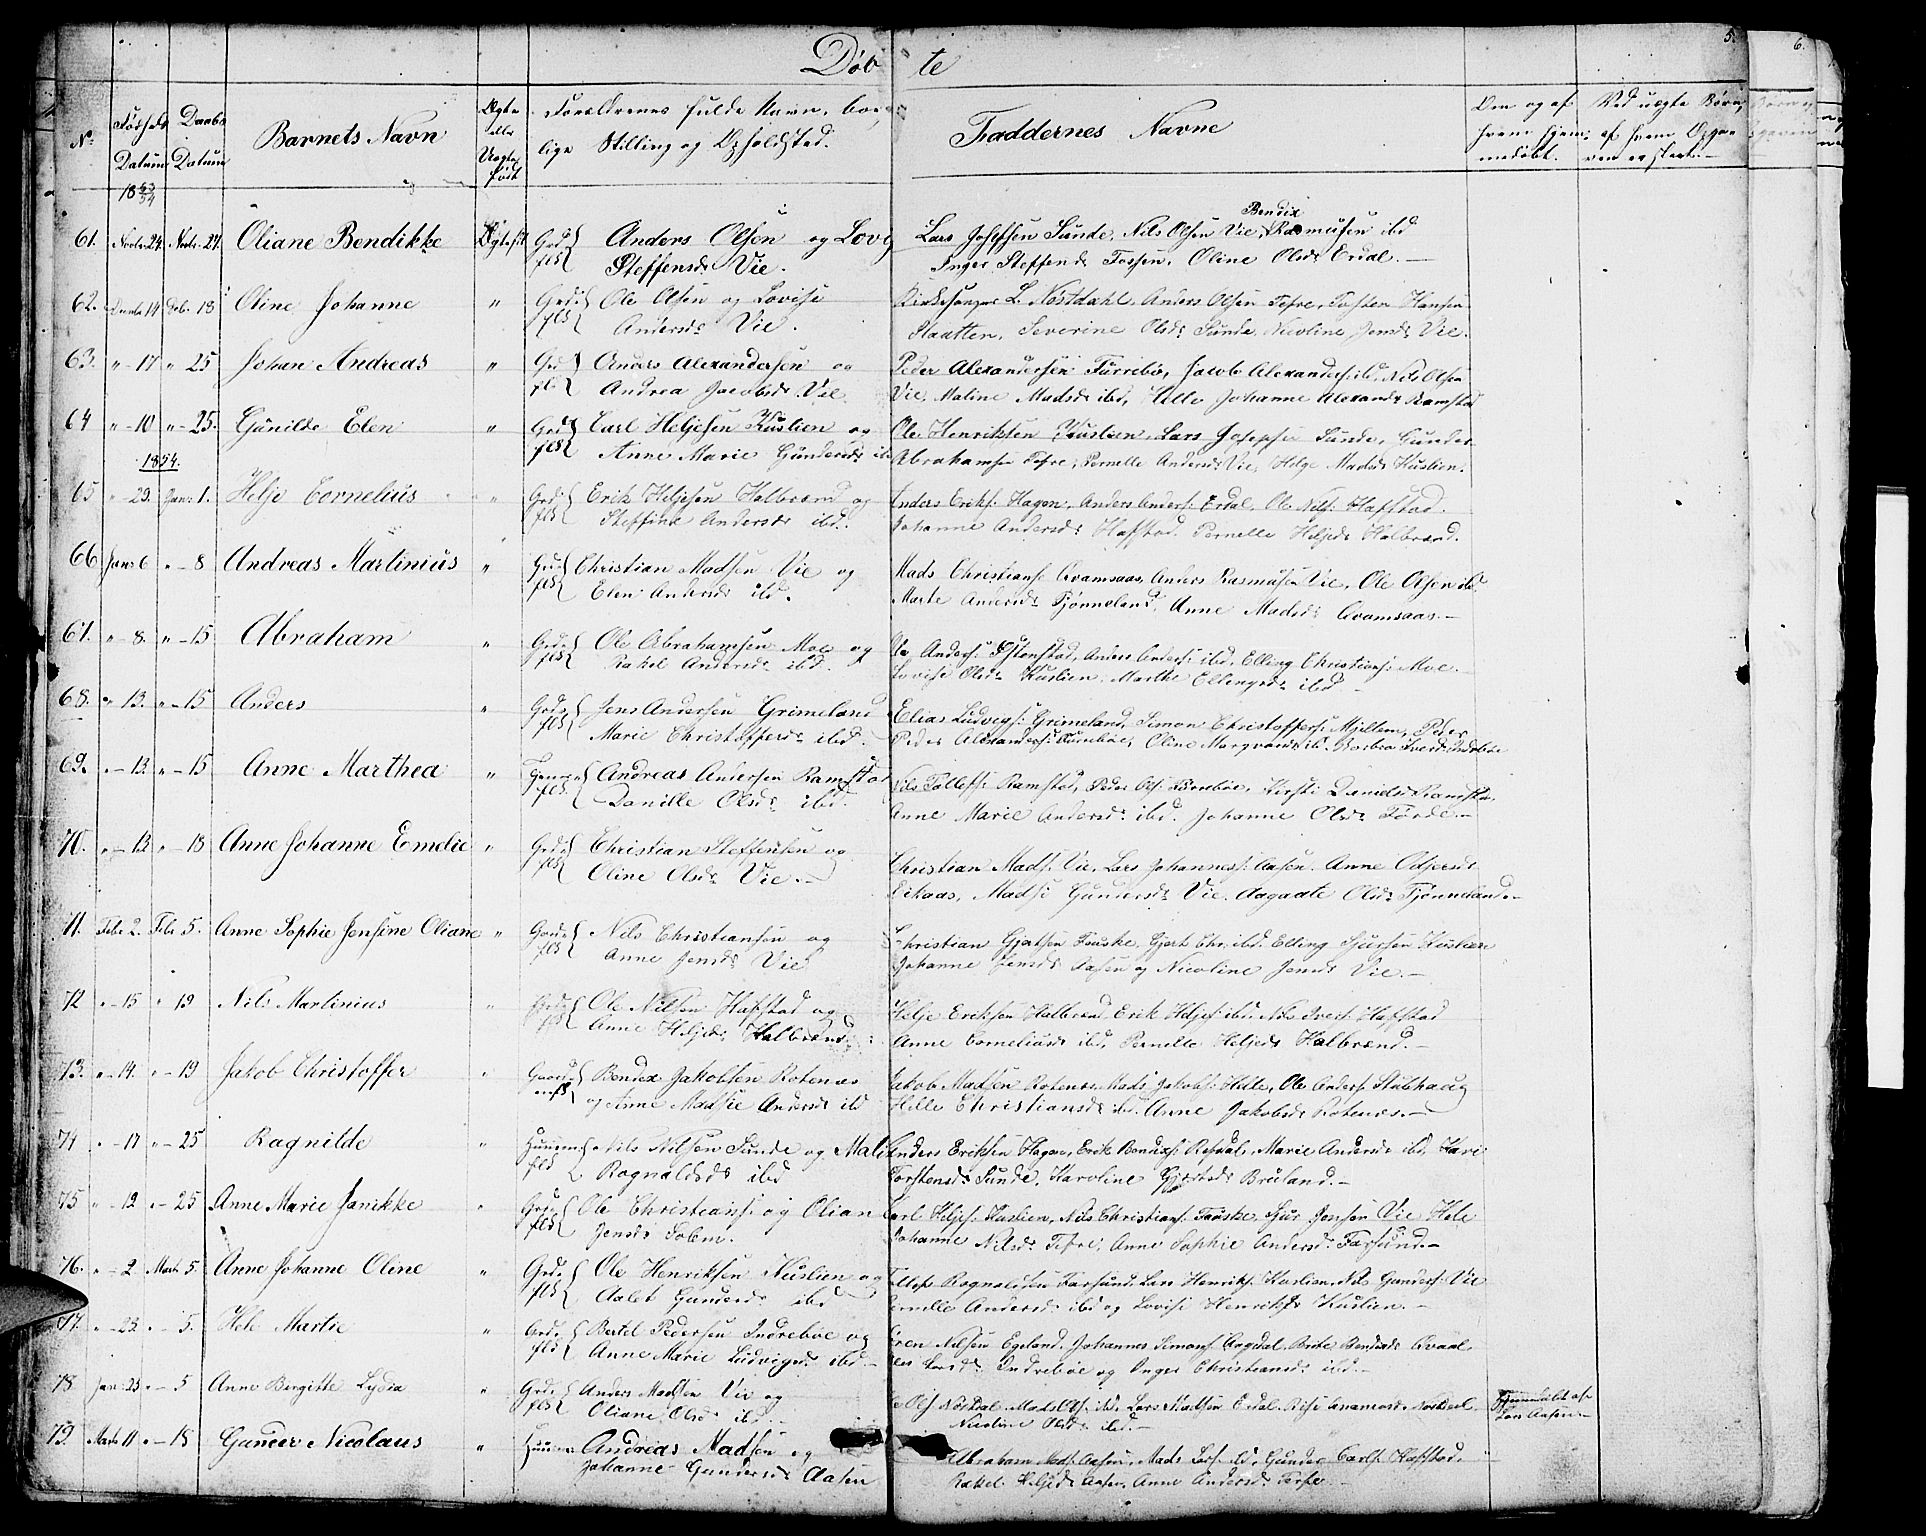 Døbte
5.
6.
No
Fødsels Datum
Daabs Datum
Barnets Navn
Ægte eller Uægte født
Forældrenes fulde Navn, borgerlige Stilling og Opholdsted.
Faddernes Navne
Om og af hvem hjemmedøbt.
Ved uægte Børn, af hvem Opgaven er skeet.
1853/54
61. Novbr. 24. Novbr. 27. Oliane Bendikke Ægtefdt Grd. flk Anders Olsen og Lovi
Steffensdr Vie.
Lars Josephsen Sunde, Nils Olsen Vie, Bendix Rasmusen ibd
Inger Steffensdr Fossen, Oline Olsdr Erdal. —
62. Decbr 14 18 Oline Johanne " Grd. flk Ole Olsen og Lovise
Andersdr Vie.
Kirkesanger L. Nøstdahl, Anders Olsen Tefre, Torsten Hansen
Slaatten, Severine Olsdr Sunde, Nicoline Jensdr Vie.
63. " - 17 " 25 Johan Andreas " Grd flk Anders Alexandersen og
Andrea Jacobsdr Vie
Peder Alexandersen Furrebø, Jacob Alexanders: ibd, Nils Olsen
Vie, Maline Madsdr ibd, Helle Johanne Alexandr Ramstad
64 " - 10 " - 25. Gunilde Elen " Grd flk Carl Heljesen Kuslien og
Anne Marie Gundersdr ibd
Ole Henriksen Kuslien, Lars Josephse Sunde, Gunder
Abrahamsen Tefre, Pernelle Andersdr Vie, Helge Madsdr Kuslien.
1854.
65 " - 29. Jan: 1. Helje Cornelius " Grd. flk Erik Heljesen Halbrænd og
Steffine Andersdr ibd.
Anders Eriks: Hagen, Anders Anders: Erdal, Ole Nils: Hafstad.
Johanne Andersdr Hafstad. Pernelle Heljedr Halbrænd.
66 Jan: 6 " - 8 Andreas Martinius " Grd flk Christian Madsen Vie og
Elen Andersdr ibd.
Mads Christians: Qvamsaas, Anders Rasmusen Vie, Ole Olsen ibd.
Marte Andersdr Tjønneland, Anne Madsdr Qvamsaas. —
67. " - 8. " - 15 Abraham " Grd. flk Ole Abrahamsen Moe og
Rakel Andersdr ibd.
Ole Anders: , Anders Anders: ibd, Elling Christians: Moe.
Lovise Olsdr Kuslien, Marthe Ellingsdr ibd —
68. " 13. " - 15 Anders " Grd. flk Jens Andersen Grimeland
Marie Christoffersdr ibd.
Elias Ludvigs: Grimeland, Simon Christoffers: Mjellem, Peder
Peder Alexanders: Furebøe, Oline Ibd. Barbra
69. " - 13. " - 15 Anne Marthea " flk. Andreas Andersen Ramstad
Danille Olsdr ibd.
Nils Tollefs: Ramstad, Peder Ols: Furebøe, Kirsti Danielsdr Ramstad,
Anne Marie Andersdr ibd. Johanne Olsdr Førde. —
70. " - 13 " - 18 Anne Johanne Emelie " Grd. flk Christian Steffensen og
Oline Olsdr Vie. —
Christian Mads: Vie, Lars Johannes: Aasen. Anne Odjersdr
Eikaas, Madsi Gundersdr Vie. Aagaate Olsdr Tjønneland. —
71. Febr 2. Febr 5. Anne Sophie Jensine Oliane " Grd. flk Nils Christiansen og
Anne Jensdr Vie
Christian Gjertsen Fauske, Gjert Chr. ibd. Elling Sjursen Kuslien
Johanne Jensdr Aasen og Nicoline Jensdr Vie. —
72 " - 15 " 19 Nils Martinius " Grd. flk Ole Nilsen Hafstad og
Anne Heljedr Halbrænd
Helje Eriksen Halbrænd Erik Heljes: ibd. Nils Ivers: Hafstad
Anne Corneliusdr ibd, Pernelle Heljedr Halbrænd. —
73. " - 14. " - 19 Jakob Christoffer " flk Bendix Jakobsen Rotenæs
og Anne Madsie Andersdr ibd
Jakob Madsen Rotenæs, Mads Jakobs: Hille, Ole Anders: Stubhaug
Hille Christiansdr ibd. Anne Jakobsdr Rotenæs. —
74 " - 17 " - 25 Ragnilde " Huusm flk Nils Nilsen Sunde og Mali
Rognaldsdr ibd
Anders Eriksen Hagen, Erik Bendix: Refsdal, Marie Andersdr ibd, Kari
Torstensdr Sunde, Karoline Gjertsdr Bruland. —
75 " - 12 " - 25 Anne Marie Janikke " Grd. flk Ole Christians: og Olian
Jensdr Solem.
Carl Heljes: Kuslien, Nils Christians: Fauske, Sjur Jensen Vie Hele
Johanne Nilsdr Tefre, Anne Sophie Andersdr Farsund. —
76. " - 2 Marts 5. Anne Johanne Oline " Grd. flk Ole Henriksen Kuslien og
Aalet Gundersdr ibd
Tollef Rognaldsen Farsund, Lars Henriks: Kuslien, Nils Gunders: Vie
Pernelle Andersdr ibd og Lovise Henriksdr Kuslien. —
77. " - 23. " - 5. Hele Martie " Grd. flk Bertel Pedersen Indrebøe og
Anne Marie Ludvigsdr ibd —
Eren Nilsen Egeland, Johannes Simons: Angedal, Brite Bendixdr Qvaal,
Larsdr Indrebøe og Inger Christiansdr ibd. —
78 Jan: 25 " - 5 Anne Birgitte Lydia " Grd. flk Anders Madsen Vie og
Oliane Olsdr ibd.
Ole Ols: Nøstdal. Mads Ols: ibd, Lars Madsen Erdal. Nøstdal,
Nicoline Olsdr ibd. —
Hjemmedøbt af Lars Aasen. —
79. Marts 11 " - 18 Gunder Nicolaus " Huusm Andreas Madsen og
Johanne Gundersdr Aasen
Abraham Mads: Aasen, Mads Lars: ibd, Gunder Carls: Hafstad,
Rakel Heljedr Aasen, Anne Andersdr Tefre —